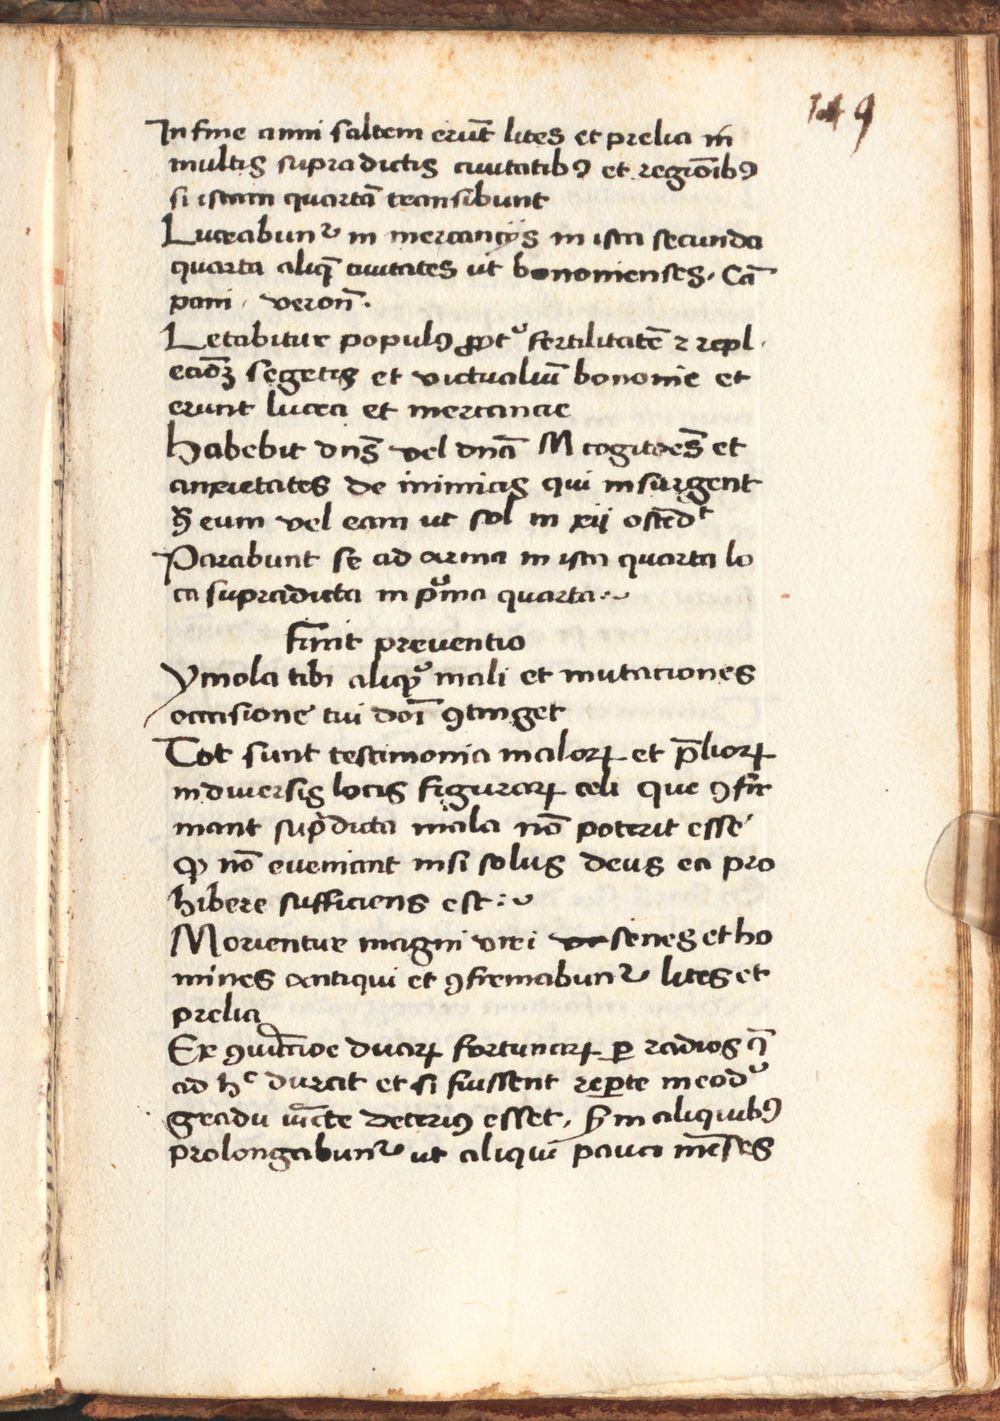 149
In fine anni saltem erūt lites et prelia in
multis supradictis ciuitatibꝰ et regiōibꝰ
si istam quartā transibunt
Lucrabunt᷑ in mercancijs in ista secunda
quarta aliq̄ ciuitates ut bononienses. Cā
pani. veron̄.
Letabitur populꝰ ꝓpt᷑ fertilitatē ⁊ repl
ecioꝫ segetis et victualiū bononie et
erunt lucra et mercancie
habebit dn̄s vel dnā M cogitōes et
anxietates de inimicis qui insurgent
ꝯ̄ eum vel eam ut sol in xij ostēdᵗ
Parabunt se ad arma in ista quarta lo
ca supradicta in p᷑ma quarta
finit preuentio
ymola tibi aliqᷓ mali et mutaciones
occasione tui doī ꝯtinget
Tot sunt testimonia maloꝝ et p̄lioꝝ
in diuersis locis figuraꝝ celi que ꝯfir
mant sup̄dicta mala nō poterit esse
ꝙ nō eueniant nisi solus deus ea pro
hibere sufficiens est
Morientur magni viri senes et ho
mines antiqui et ꝯfremabunt᷑ lites et
prelia
Ex ꝯiūcioe duaꝝ fortunaꝝ ꝑ radios q̄
ad hᶜ durat et si fuissent reꝑte in eod᷑
gradu iūcte deteriꝰ esset, in aliquibꝰ
prolongabunt᷑ ut aliquī pauci mēses